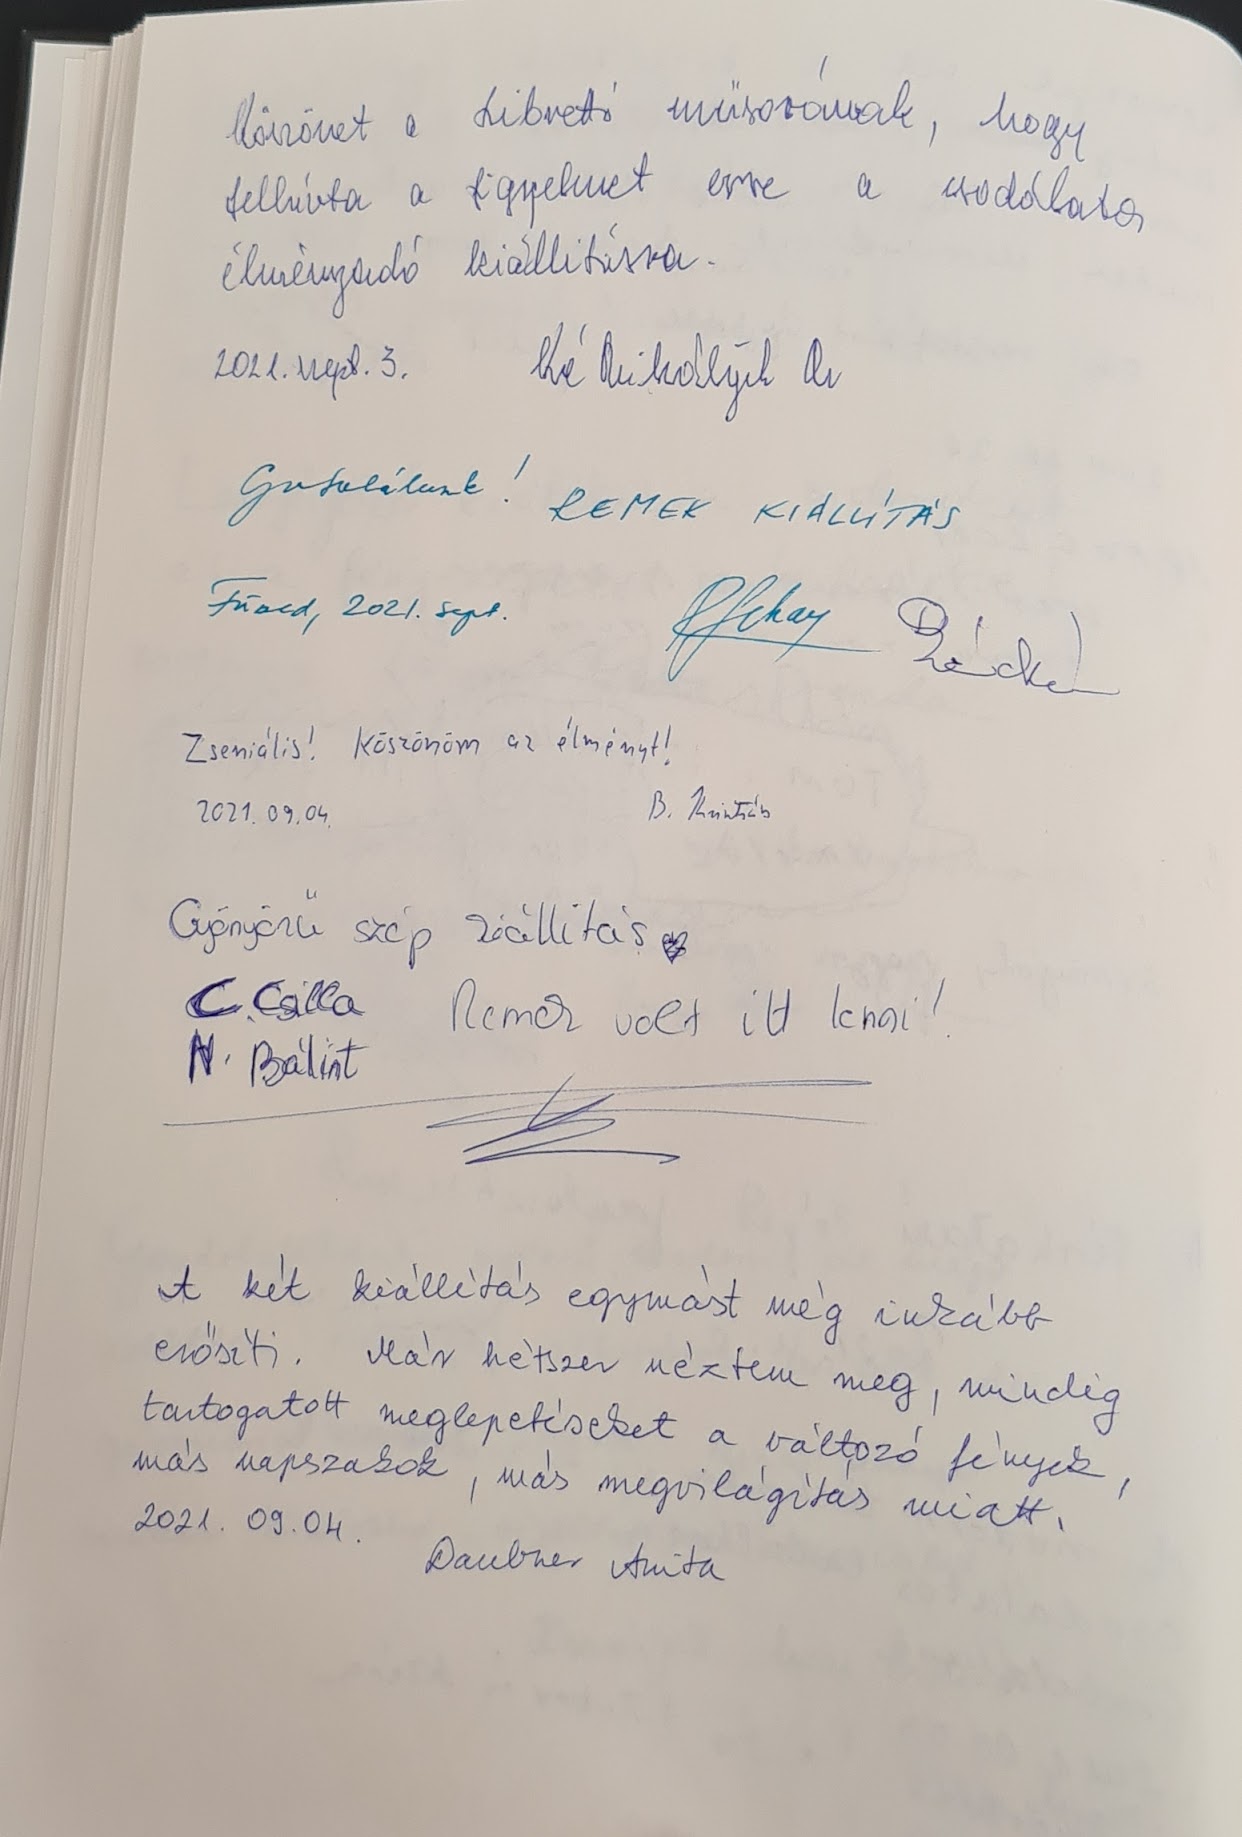 Köszönet a Librettó műsorának, hogy
felhívta a figyelmet erre a csodálatos
élményadó kiállításra.
2021. szept. 3.
Gratulálunk! REMEK KIÁLLÍTÁS
Füred, 2021. sept.
Zseniális! Köszönöm az élményt!
2021.09.04. B.
Gyönyörű szép kiállítás
C. Csilla Remek volt itt lenni!
N. Bálint
A két kiállítás egymást még inkább
erősíti. Már hétszer néztem meg, mindig
tartogatott meglepetéseket a változó fények,
más napszakok, más megvilágítás miatt.
2021. 09.04.
Daubner Anita